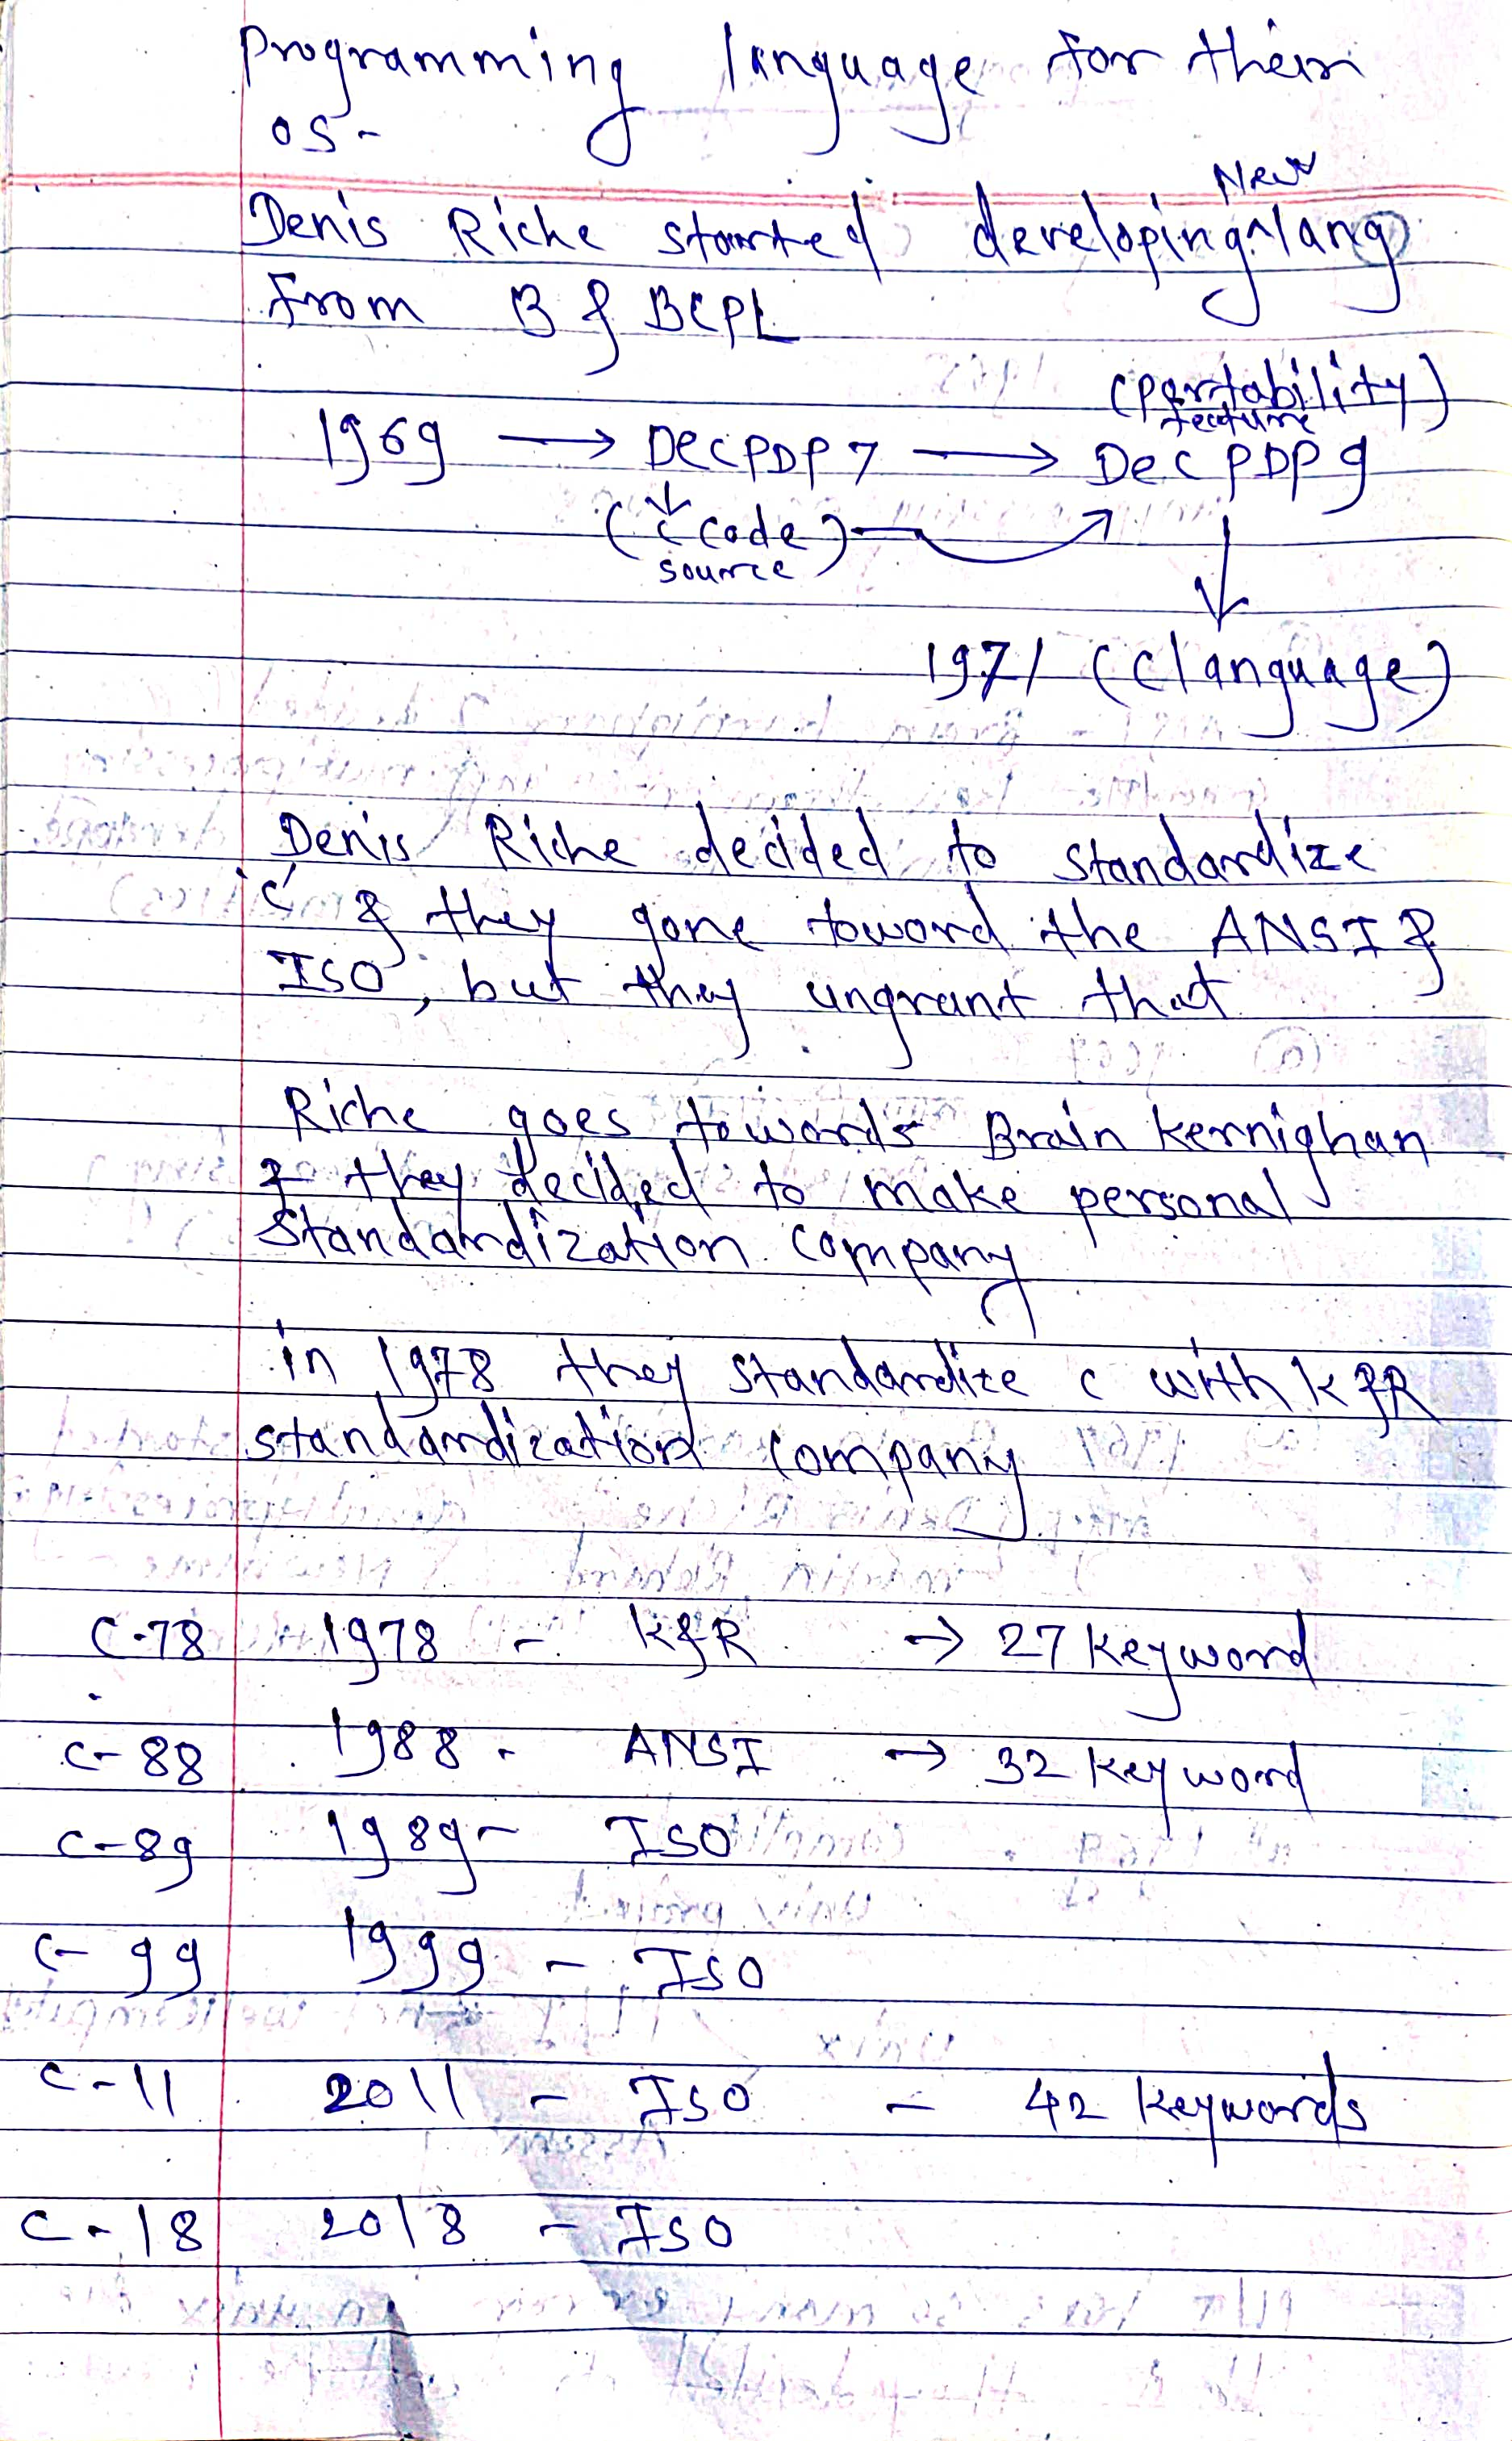 programming language for their
OS -
New
Denis Riche started developing ^ lang
From B & BCPL
(portability
feature)
1969 → DEC PDP 7 → DEC PDP 9
(C code)
source
1971 (C language)
Denis Riche decided to standardize
'C' & they gone toword the ANSI &
ISO, but they ungrant that
Riche goes towords Brain kernighan
& they decided to make personal
standardization company
in 1978 they standardize c with K & R
standardization company
C-78 1978 - K&R → 27 keyword
C-88 1988 - ANSI → 32 keyword
C-89 1989 - ISO
C-99 1999 - ISO
C-11 2011 - ISO - 42 keywords
C-18 2018 - ISO